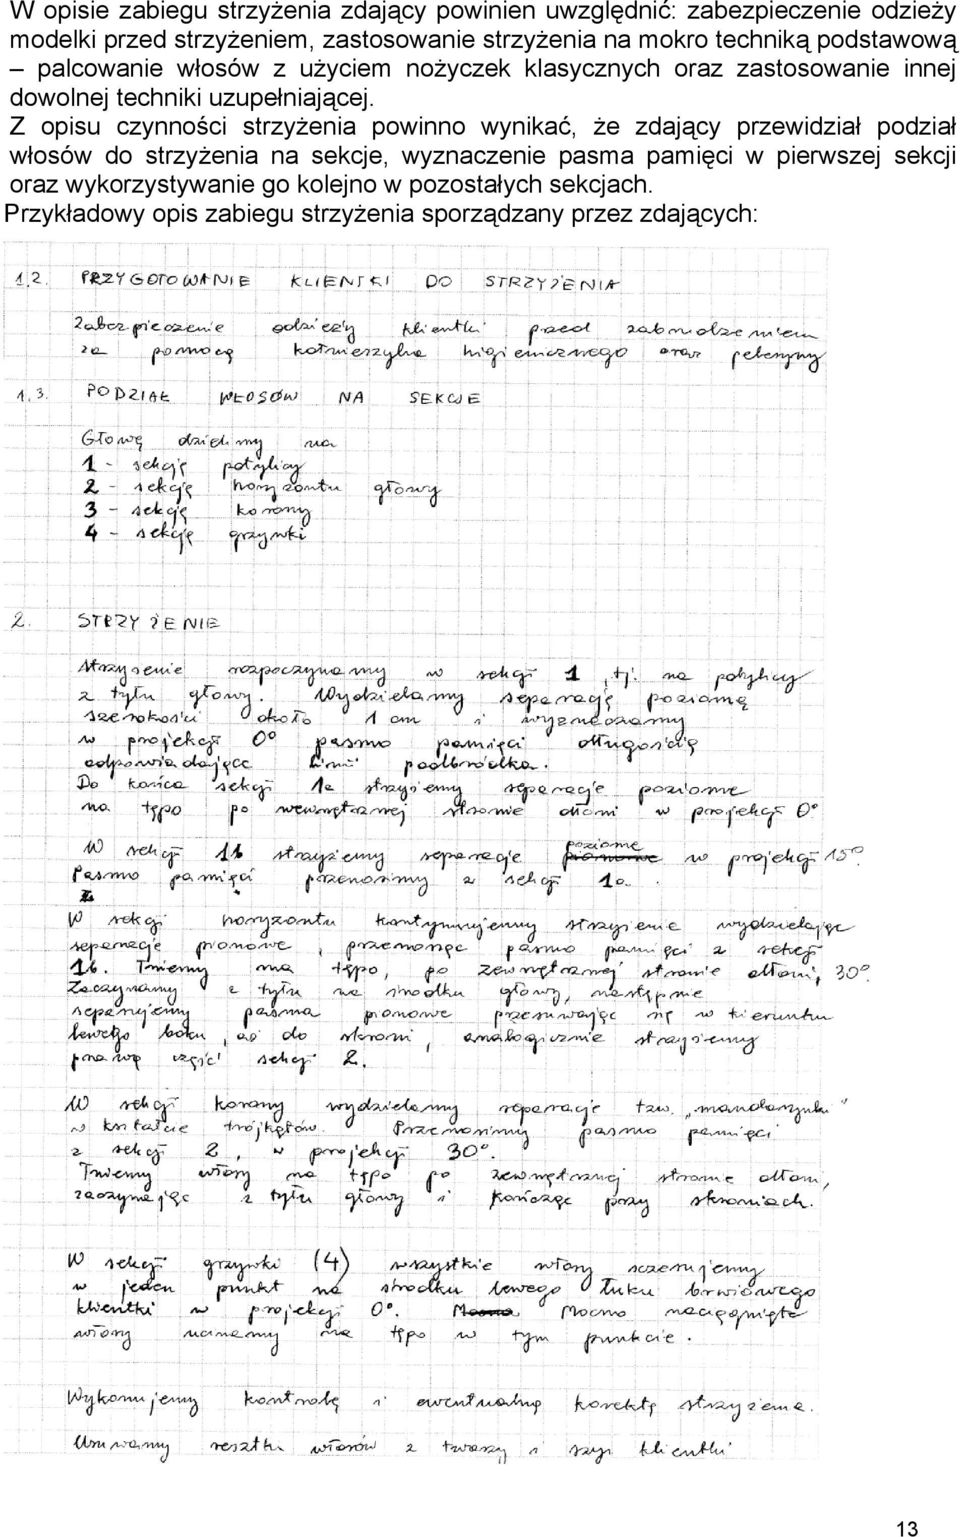 W opisie zabiegu strzyżenia zdający powinien uwzględnić: zabezpieczenie odzieży
modelki przed strzyżeniem, zastosowanie strzyżenia na mokro techniką podstawową
– palcowanie włosów z użyciem nożyczek klasycznych oraz zastosowanie innej
dowolnej techniki uzupełniającej.
Z opisu czynności strzyżenia powinno wynikać, że zdający przewidział podział
włosów do strzyżenia na sekcje, wyznaczenie pasma pamięci w pierwszej sekcji
oraz wykorzystywanie go kolejno w pozostałych sekcjach.
Przykładowy opis zabiegu strzyżenia sporządzany przez zdających:
1.2. PRZYGOTOWANIE KLIENTKI DO STRZYŻENIA
Zabezpieczenie odzieży klientki przed zabrudzeniem
za pomocą kołnierzyka higienicznego oraz peleryny
1.3. PODZIAŁ WŁOSÓW NA SEKCJE
Głowę dzielimy na
1 - sekcję potylicy
2 - sekcję horyzontu głowy
3 - sekcję korony
4 - sekcję grzywki
2. STRZYŻENIE
Strzyżenie rozpoczynamy w sekcji 1, tj. na potylicy
z tyłu głowy. Wydzielamy separację poziomą
szerokości około 1 cm i wyznaczamy
w projekcji 0° pasmo pamięci długością
odpowiadające linii podbródka.
Do końca sekcji 1a strzyżemy separacje poziome
na tępo po wewnętrznej stronie dłoni w projekcji 0°
W sekcji 1b strzyżemy separacje poziome w projekcji 15°.
Pasmo pamięci przenosimy z sekcji 1a.
W sekcji horyzontu kontynuujemy strzyżenie wydzielając
separacje pionowe, przenosząc pasmo pamięci z sekcji
1b. Tniemy na tępo, po zewnętrznej stronie dłoni, 30°.
Zaczynamy z tyłu na środku głowy, następnie
separujemy pasma pionowe przesuwając się w kierunku
lewego boku, aż do skroni, analogicznie strzyżemy
prawą część sekcji 2.
W sekcji korony wydzielamy separacje tzw. „mandarynki"
w kształcie trójkątów. Przenosimy pasmo pamięci
z sekcji 2, w projekcji 30°.
Tniemy włosy na tępo po zewnętrznej stronie dłoni,
zaczynając z tyłu głowy i kończąc przy skroniach.
W sekcji grzywki (4) wszystkie włosy sczesujemy
w jeden punkt na środku lewego łuku brwiowego
klientki w projekcji 0°. Mocno naciągnięte
włosy ucinamy na tępo w tym punkcie.
Wykonujemy kontrolę i ewentualną korektę strzyżenia.
Usuwamy resztki włosów z twarzy i szyi klientki
13